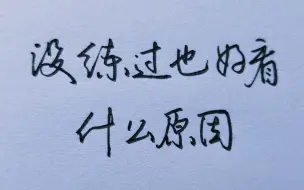 没练过也好看
什么原因